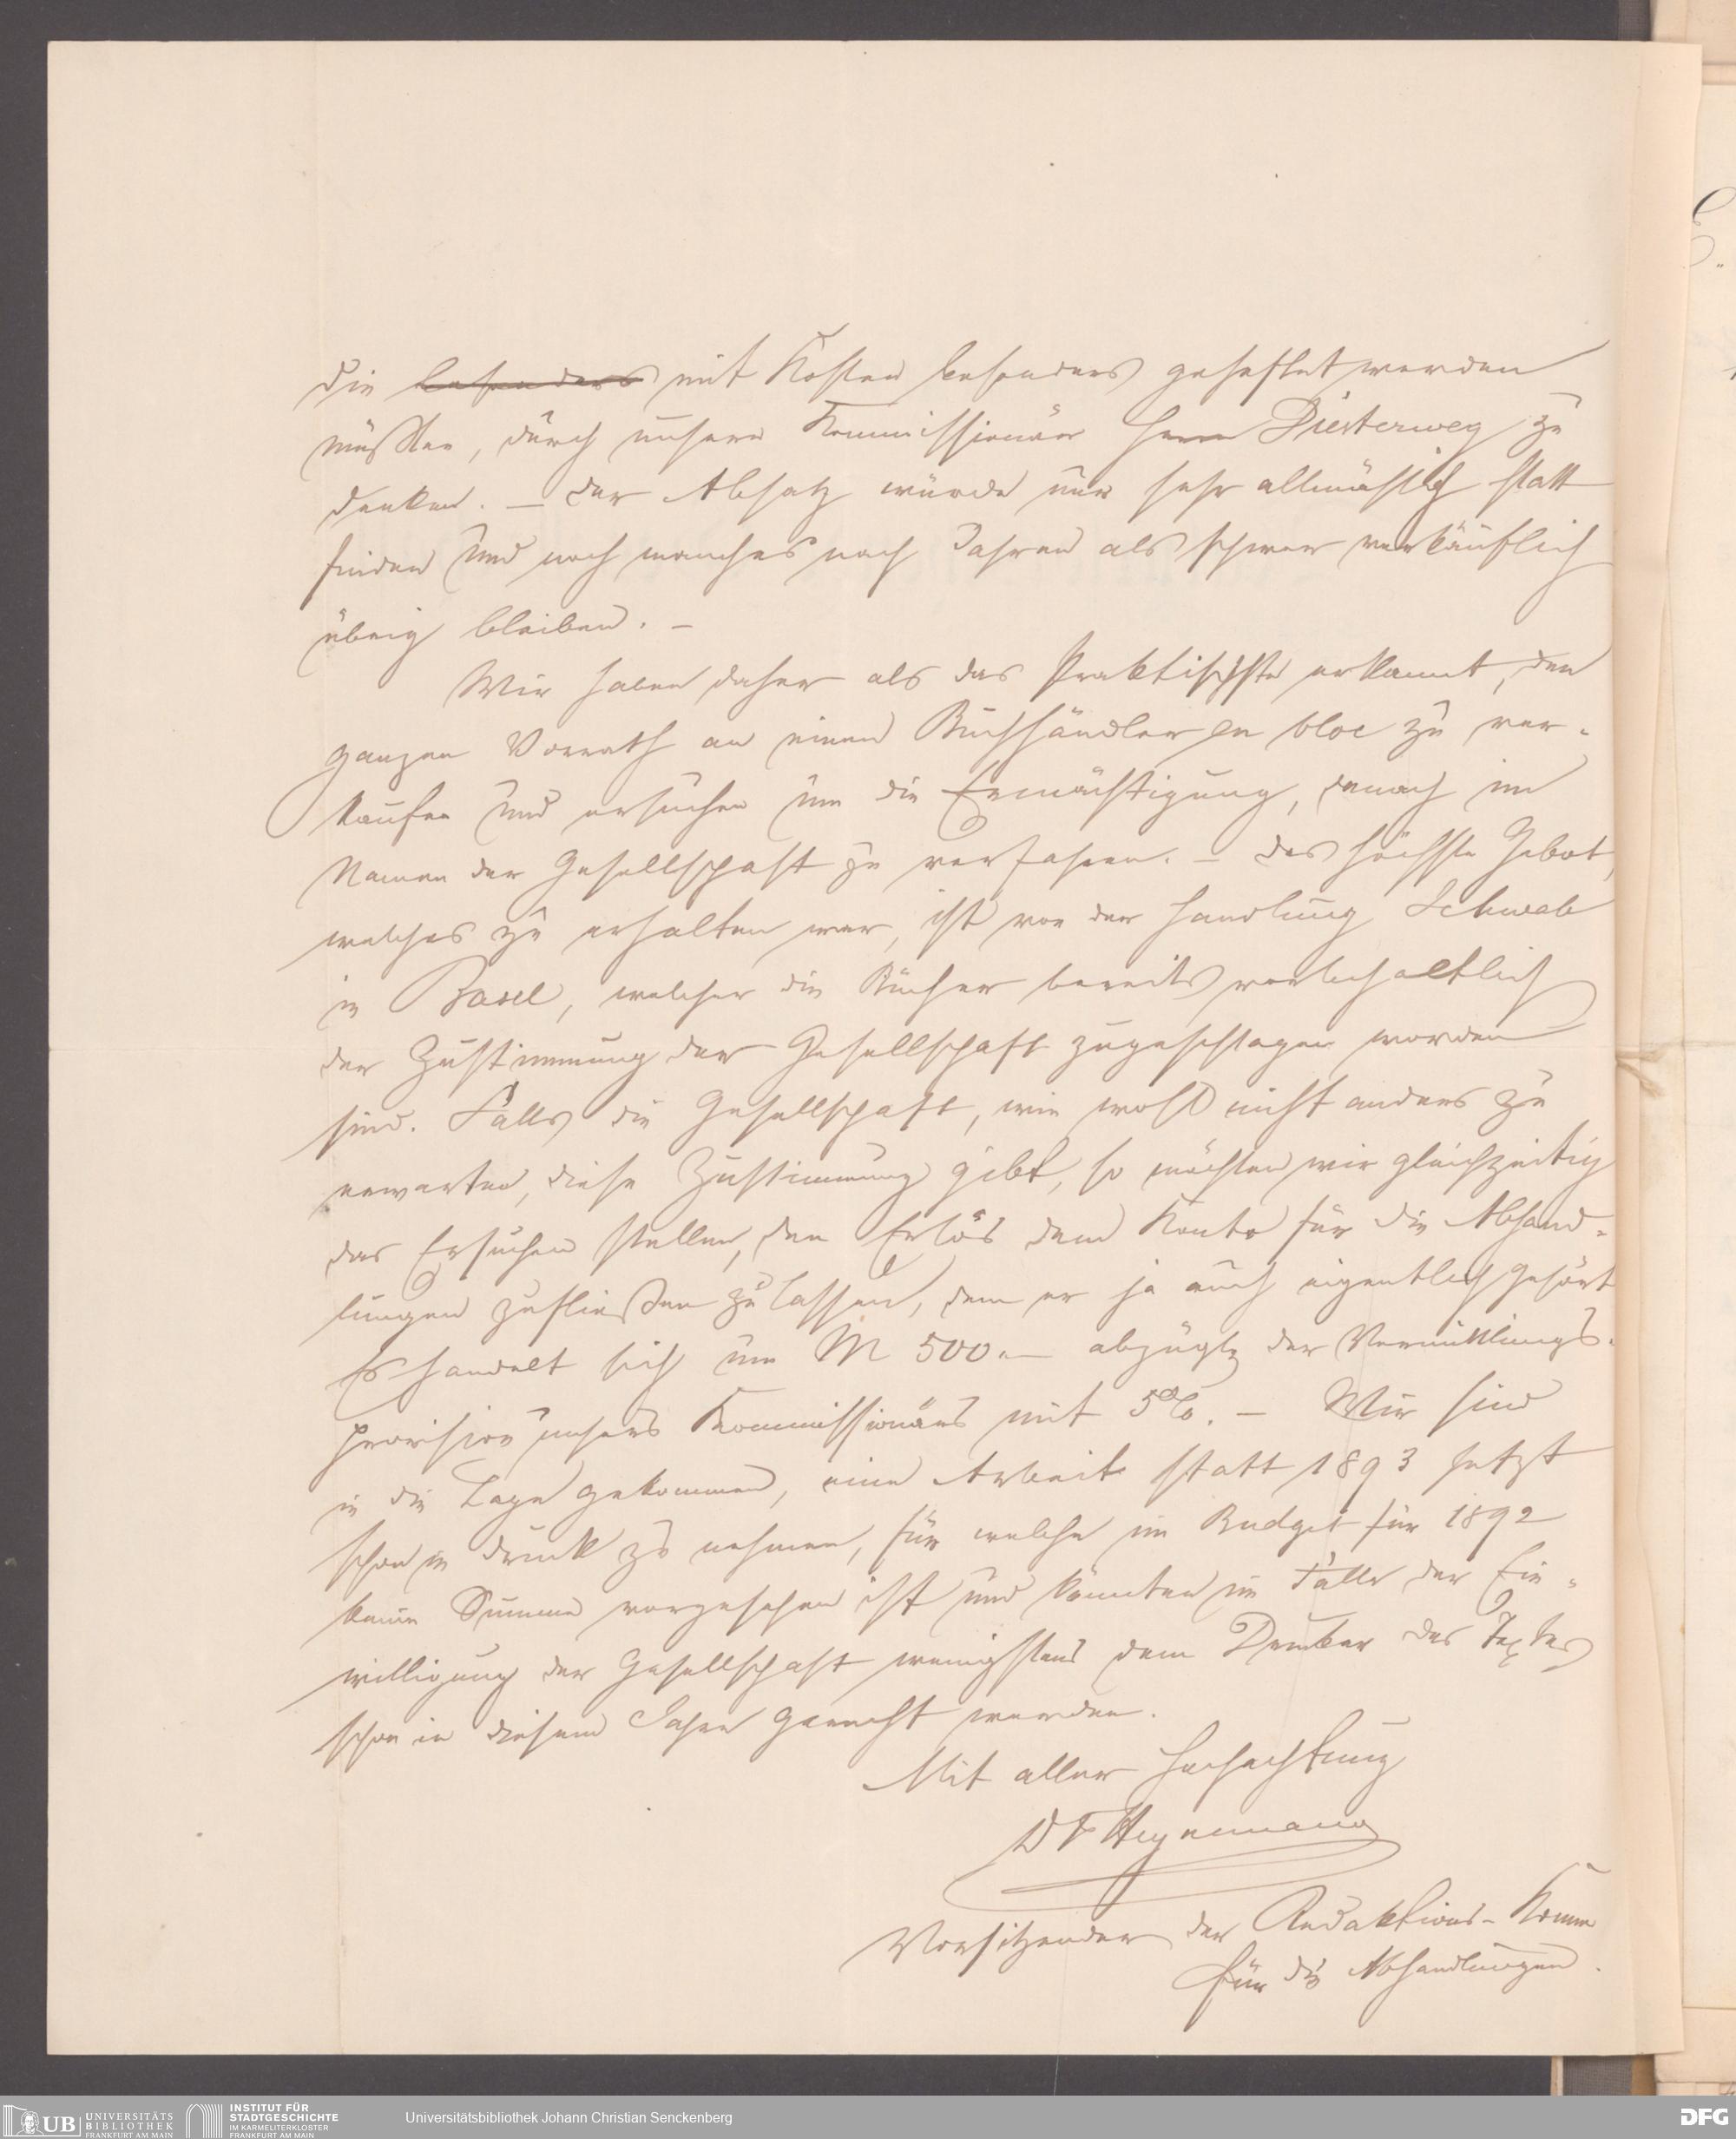 die besonders mit Kosten besonders geheftet werden
müßten, durch unsern Kommissionär Herrn Diesterweg zu
denken. – Der Absatz würde nur sehr allmählich statt
finden und noch manches nach Jahren als schwer verkäuflich
übrig bleiben. –
Wir haben daher als das Praktischste erkannt, den
ganzen Vorrath an einen Buchhändler en bloc zu ver-
kaufen und ersuchen um die Ermächtigung, danach im
Namen der Gesellschaft zu verfahren. – Das höchste Gebot,
welches zu erhalten war, ist von der Handlung Schwab
in Basel, welcher die Bücher bereits vorbehaltlich
der Zustimmung der Gesellschaft zugeschlagen worden
sind. Falls die Gesellschaft, wie wohl nicht anders zu
erwarten, diese Zustimmung gibt, so möchten wir gleichzeitig
das Ersuchen stellen, den Erlös dem Konto für die Abhand-
lungen zufließen zu lassen, dem er ja auch eigentlich gehört
Es handelt sich um M 500.– abzügl. der Vermittlungs-
provision unsers Kommissionärs mit 5%. – Wir sind
in die Lage gekommen, eine Arbeit statt 1893 jetzt
schon in Druck zu nehmen, für welche im Budget für 1892
keine Summe vorgesehen ist und könnten im Falle der Ein-
willigung der Gesellschaft wenigstens dem Drucker des Textes
schon in diesem Jahre gerecht werden.
Mit aller Hochachtung
DF Heynemann
Vorsitzender der Redaktions-Komm
für die Abhandlungen.
UB UNIVERSITÄTS
BIBLIOTHEK
FRANKFURT AM MAIN
INSTITUT FÜR
STADTGESCHICHTE
IM KARMELITERKLOSTER
FRANKFURT AM MAIN
Universitätsbibliothek Johann Christian Senckenberg
DFG